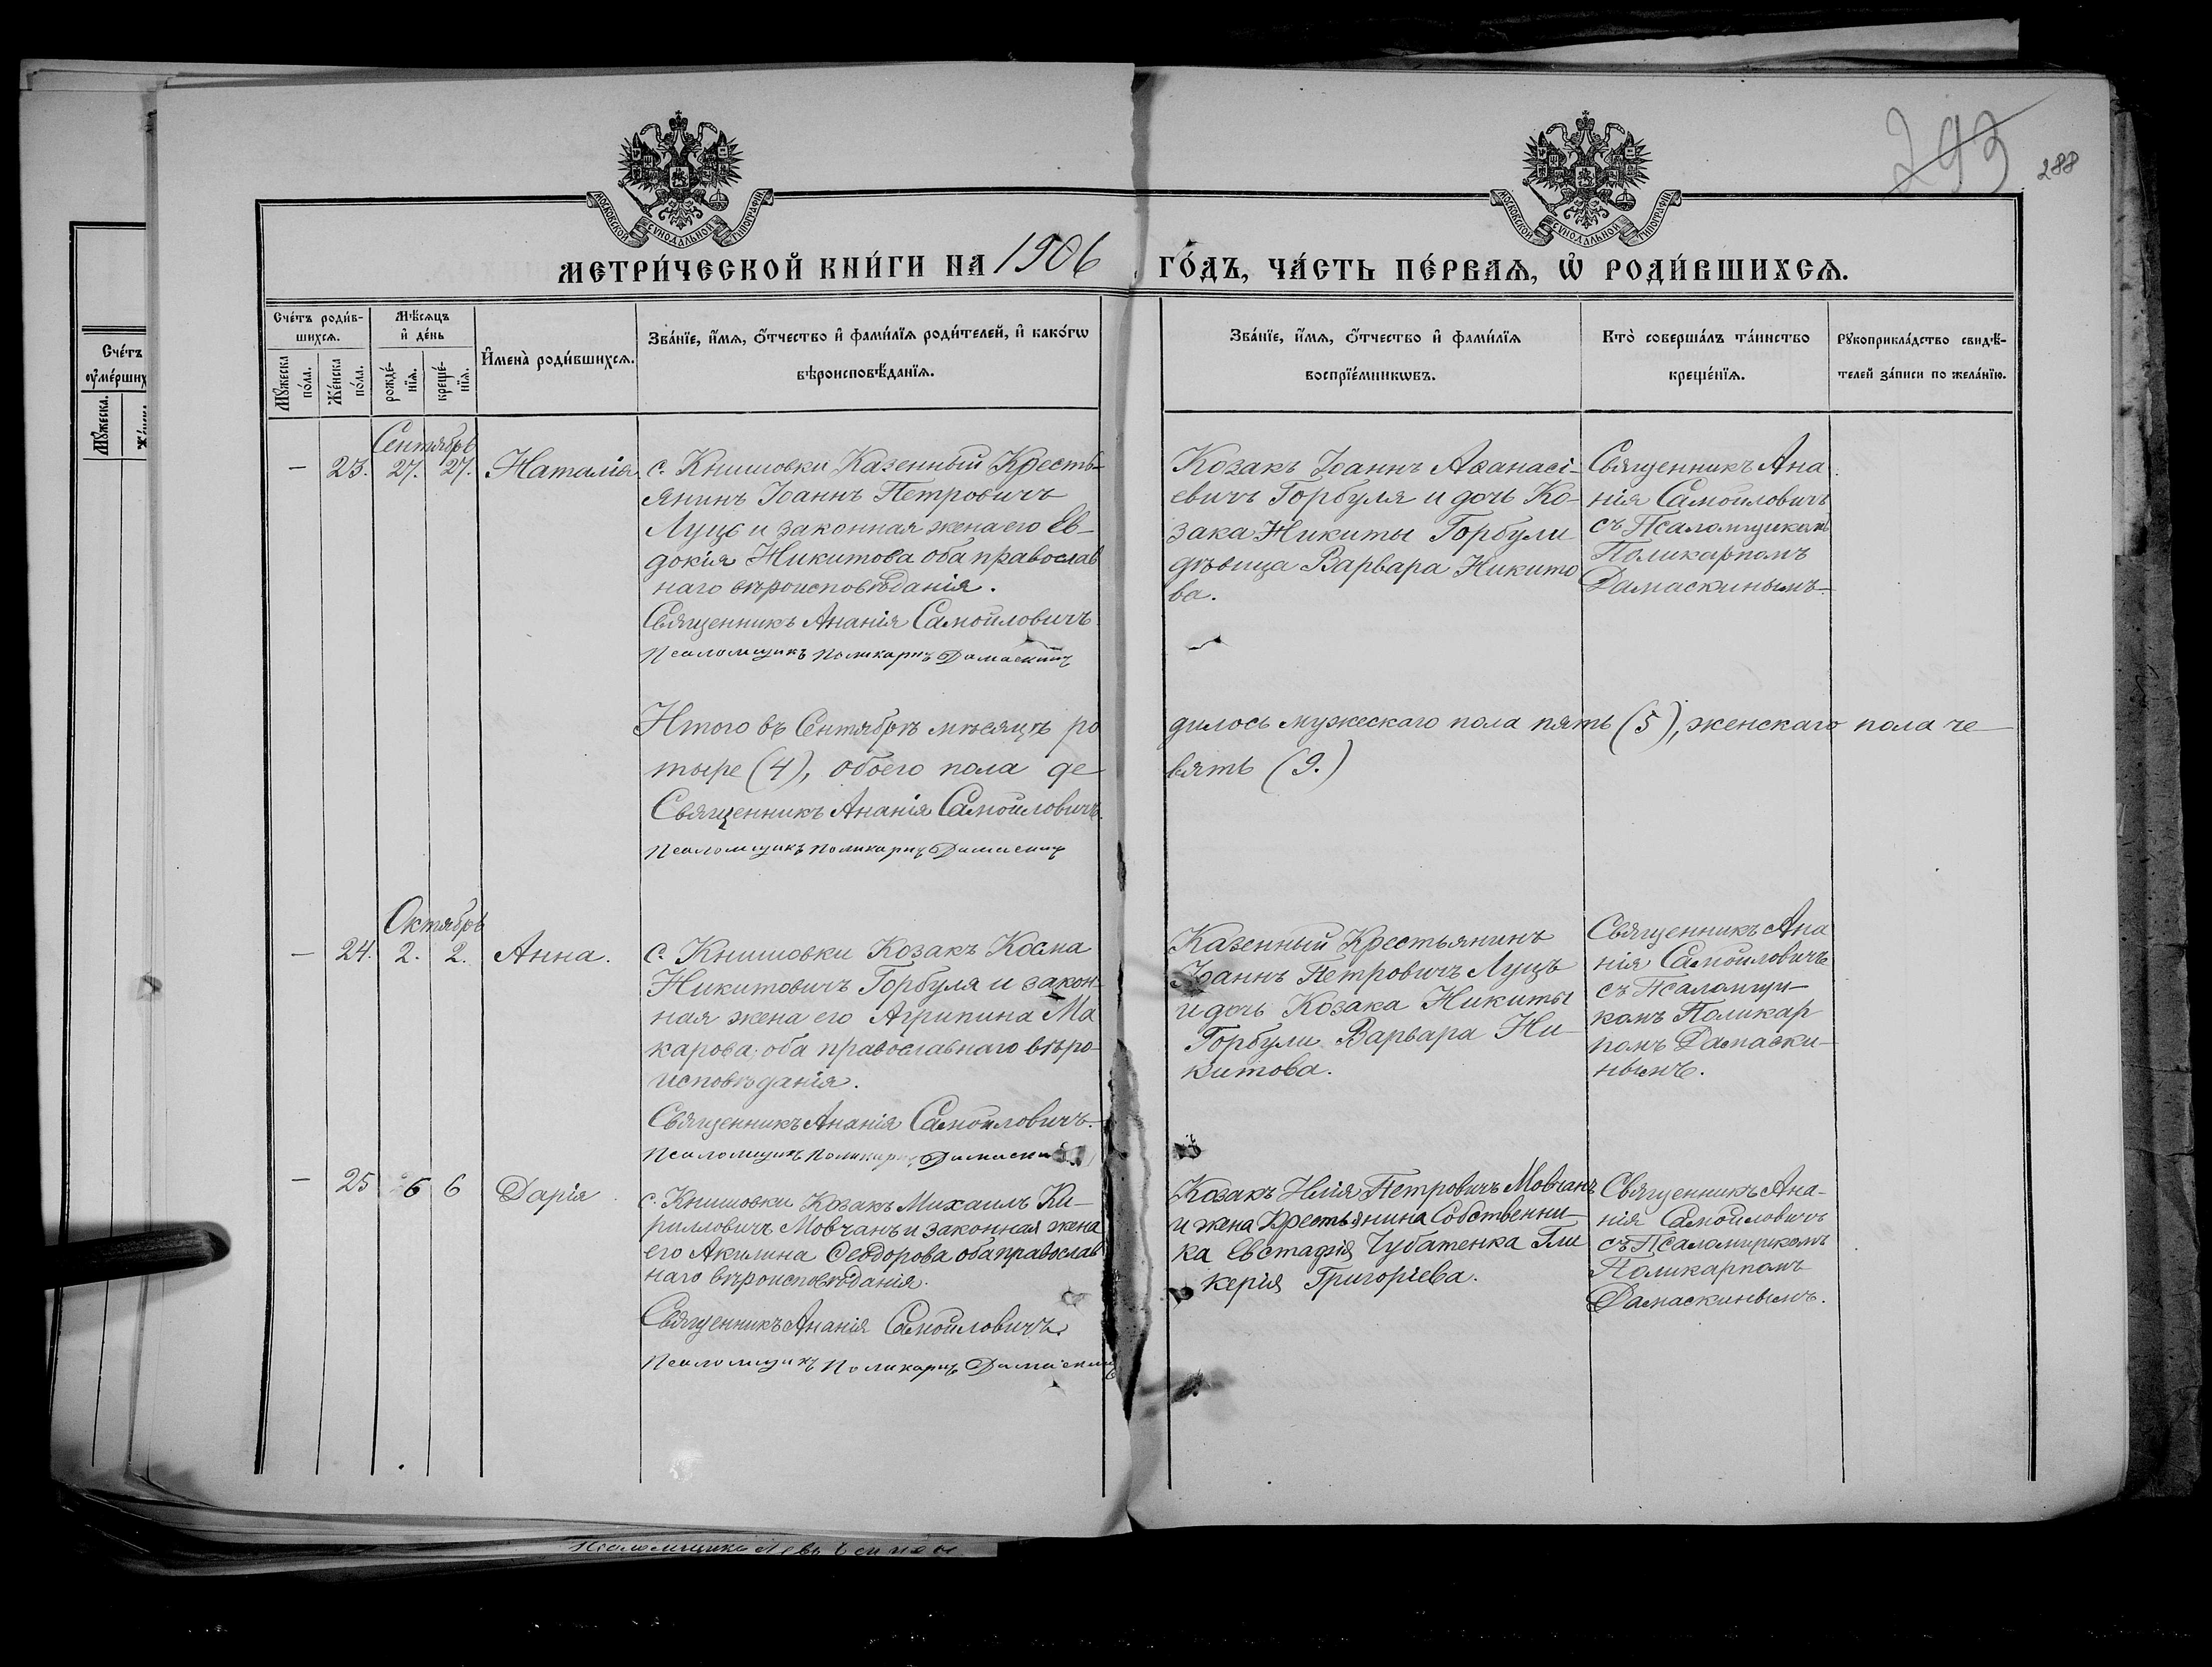 293
288
МОСКОВСКОЙ СѴНОДАЛЬНОЙ ТИПОГРАФІИ
МОСКОВСКОЙ СѴНОДАЛЬНОЙ ТИПОГРАФІИ
МЕТРИ́ЧЕСКОЙ КНИ́ГИ НА 1906 ГО́ДЪ, ЧА́СТЬ ПЕ́РВАѦ, Ѡ҆ РОДИ́ВШИХСѦ.
Сче́тъ
ᲂу҆ме́рших
Мꙋ́жеска.
Сче́тъ роди́в-
шихсѧ.
Мꙋ́жеска
по́ла.
Же́нска
по́ла.
Мѣ́сѧцъ
и҆ де́нь
рожде́-
нїѧ.
креще́-
нїѧ.
И҆мена̀ роди́вшихсѧ.
Зва́нїе, и҆́мѧ, ѻ҆́тчество и҆ фами́лїѧ роди́телей, и҆ како́гѡ
вѣроисповѣ́данїѧ.
Зва́нїе, и҆́мѧ, ѻ҆́тчество и҆ фами́лїѧ
воспрїе́мникѡвъ.
Кто̀ соверша́лъ та́инство
креще́нїѧ.
Рꙋкоприкла́дство свидѣ́-
телей за́писи по жела́нїю.
Сентябрь
— 23. 27. 27. Наталія.
с. Книшовки Казенный Кресть-
янинъ Іоаннъ Петровичъ
Луцъ и законная жена его Ев-
докія Никитова оба православ
наго вѣроисповѣданія.
Священникъ Ананія Самойловичъ
Псаломщикъ Поликарпъ Дамаскинъ
Козакъ Іоаннъ Аѳанасі-
евичъ Горбуля и дочь Ко-
зака Никиты Горбули
дѣвица Варвара Никито
ва.
Священникъ Ана
нія Самойловичъ
съ Псаломщикомъ
Поликарпомъ
Дамаскинымъ
Итого въ Сентябрѣ мѣсяцѣ ро
дилось мужескаго пола пять (5), женскаго пола че
тыре (4), обоего пола де
вять (9.)
Священникъ Ананія Самойловичъ.
Псаломщикъ Поликарпъ Дамаскинъ
Октябрь
— 24. 2. 2. Анна.
с. Книшовки Козакъ Косма
Никитовичъ Горбуля и закон-
ная жена его Агрипина Ма
карова, оба православнаго вѣро-
исповѣданія.
Священникъ Ананія Самойловичъ.
Псаломщикъ Поликарпъ Дамаскинъ
Казенный Крестьянинъ
Іоаннъ Петровичъ Луцъ
и дочь Козака Никиты
Горбули Варвара Ни-
китова.
Священникъ Ана
нія Самойловичъ
съ Псаломщи-
комъ Поликар
помъ Дамаски-
нымъ.
— 25 6 6 Дарія
с. Книшовки Козакъ Михаилъ Ки-
рилловичъ Мовчанъ и законная жена
его Акилина Ѳеодорова оба православ
наго вѣроисповѣданія.
Священникъ Ананія Самойловичъ
Псаломщикъ Поликарпъ Дамаскинъ
Козакъ Илія Петровичъ Мовчанъ
и жена Крестьянина Собственни-
ка Евстафія Чубатенка Гли
керія Григоріева.
Священникъ Ана-
нія Самойловичъ
съ Псаломщикомъ
Поликарпомъ
Дамаскинымъ.
Псаломщикъ